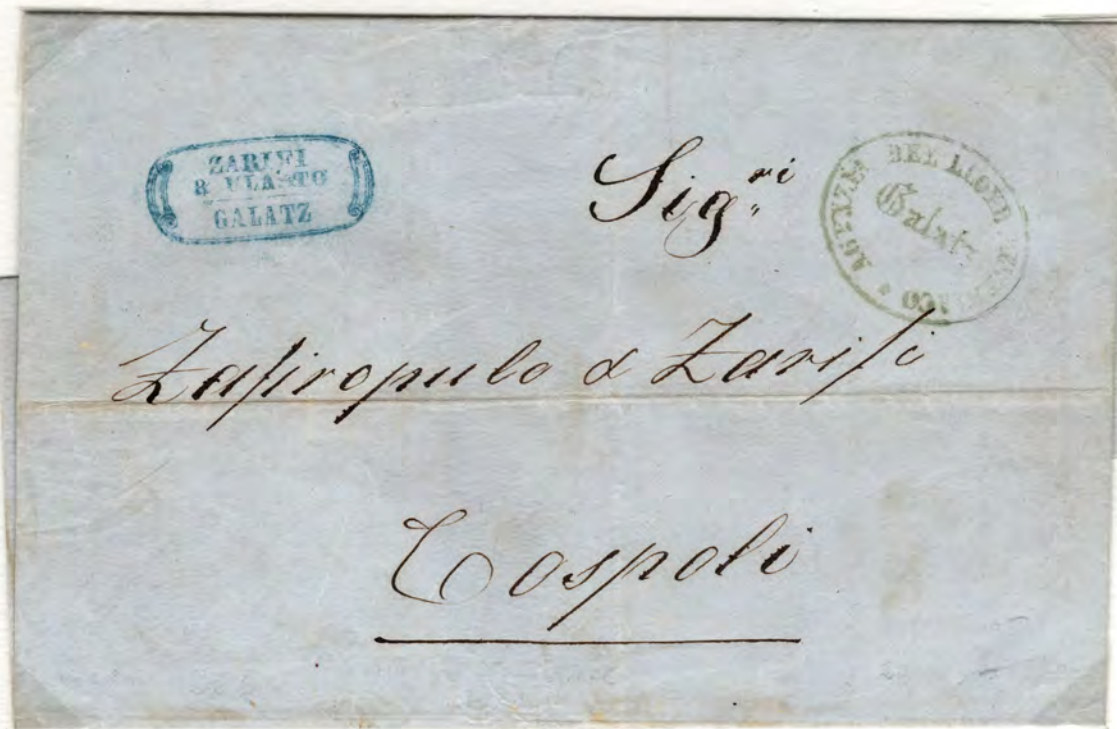 ZARIFI
& VLASTO
GALATZ
Sig.ri
AGENZIA DEL LLOYD AUSTRIACO
Galatz
Zafiropulo & Zarifi
Cospoli